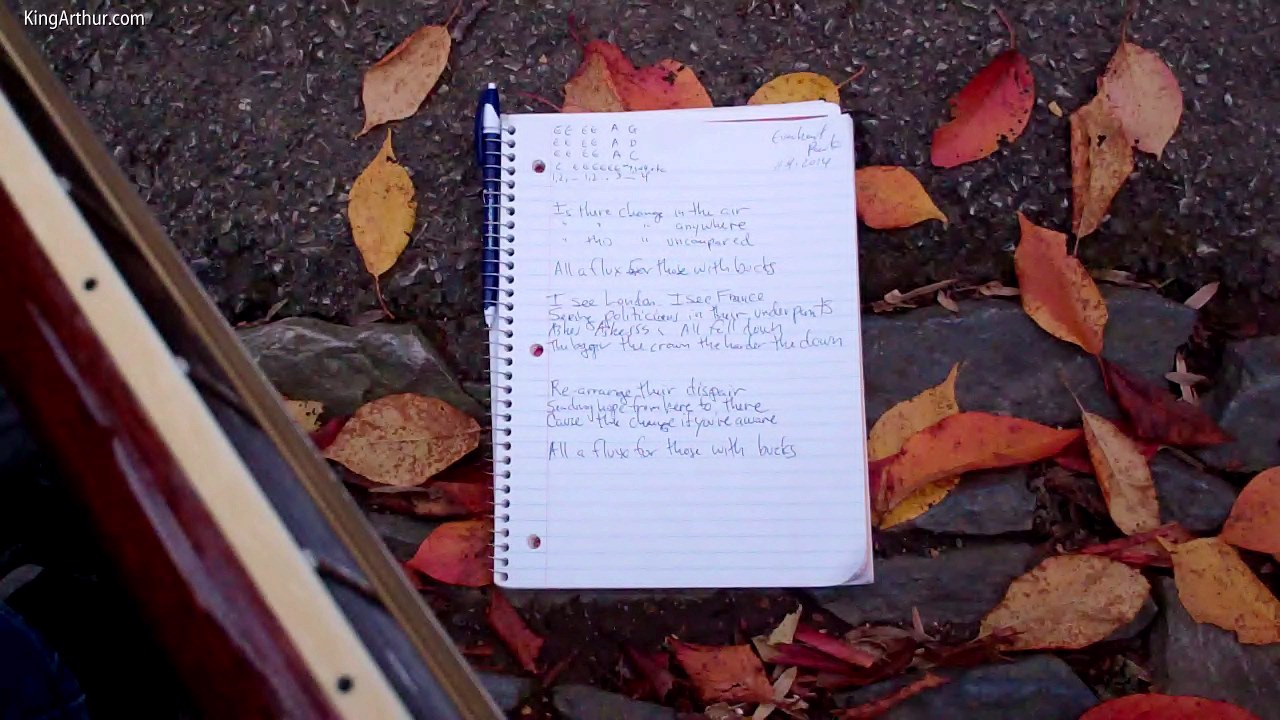 KingArthur.com
EE EE A G
EE EE A D
EE EE A C
C EEEEEE
Park
11.4.2014
Is there change in the air
" " " anywhere
" this " uncompared
All a flux for those with bucks
I see London I see France
Seeing politicians in their underpants
Ashes Ashes All fall down
The bigger the crown the harder the clown
Re-arrange their dispair
Sending hope from here to there
Cause the change if you're aware
All a flux for those with bucks